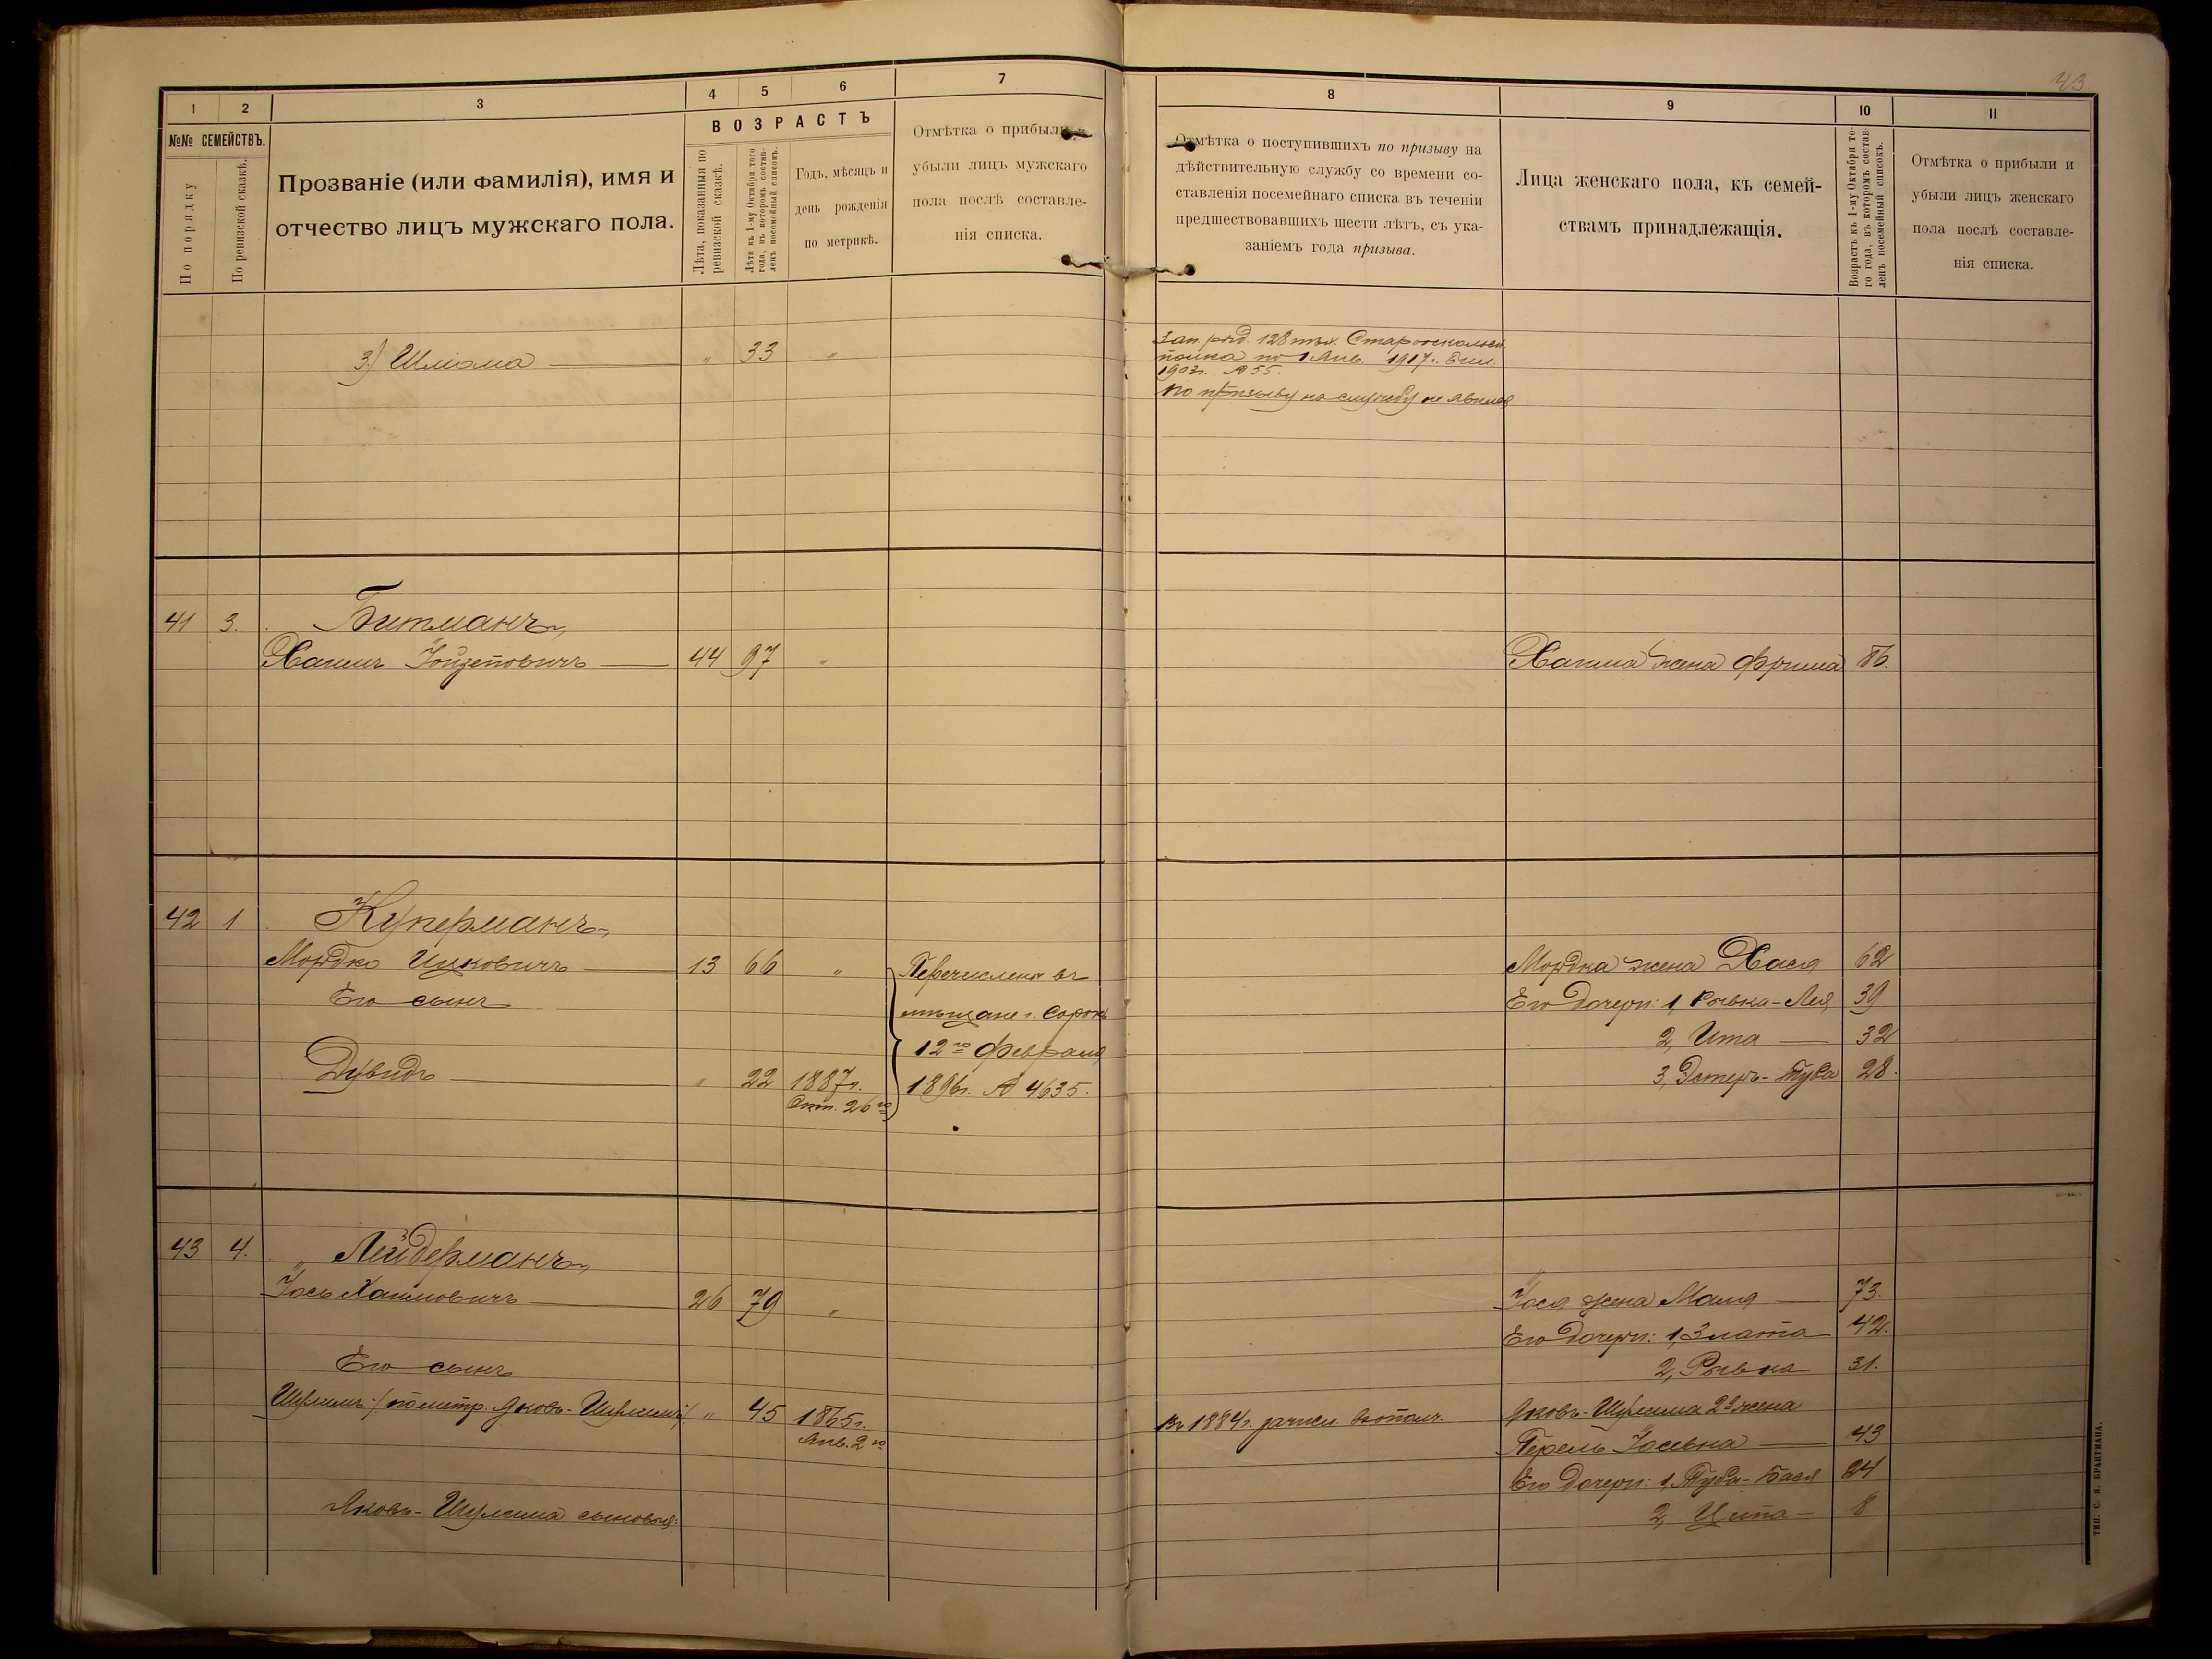 43
1
2
3
4
5
6
7
№№ СЕМЕЙСТВЪ.
По порядку
По ревизской сказкѣ.
Прозваніе (или фамилія), имя и
отчество лицъ мужскаго пола.
ВОЗРАСТЪ
Лѣта, показанныя по
ревизской сказкѣ.
Лѣта къ 1-му Октября того
года, въ которомъ состав-
ленъ посемейный списокъ.
Годъ, мѣсяцъ и
день рожденія
по метрикѣ.
Отмѣтка о прибыли и
убыли лицъ мужскаго
пола послѣ составле-
нія списка.
3) Шлома " 33 "
41 3. Битманъ
Хаимъ Іойзеповичъ 44 97 "
42 1 Куперманъ
Мордко Ицковичъ 13 66 "
Его сынъ
Дувидъ " 22 1887г.
26го
Перечислены въ
мѣщане г. Сорокъ
12го Февраля
1896г. № 4635.
43 4. Лейдерманъ
Іось Хаимовичъ 26 79 "
Его сынъ
Шулимъ /: по метр. Яковъ-Шулимъ :/ " 45 1865г.
Янв. 2го
Яковъ-Шулима сыновья:
8
9
10
11
Отмѣтка о поступившихъ по призыву на
дѣйствительную службу со времени со-
ставленія посемейнаго списка въ теченіи
предшествовавшихъ шести лѣтъ, съ ука-
заніемъ года призыва.
Лица женскаго пола, къ семей-
ствамъ принадлежащія.
Возрастъ къ 1-му Октября то-
го года, въ которомъ состав-
ленъ посемейный списокъ.
Отмѣтка о прибыли и
убыли лицъ женскаго
пола послѣ составле-
нія списка.
Зап. ряд. 128 пѣх. Старооскольск.
полка по 1 Янв. 1917г. Бил.
1903г. № 55.
По призыву на службу не явился
Хаима жена Фрима 86.
Мордка жена Хася 62
Его дочери: 1, Рывка-Лея 39
2, Ита 32
3, Эстеръ-Туба 28.
Іося жена Маля 73.
Его дочери: 1, Злата 42.
2, Рывка 31.
Въ 1884г. зачисл. в ополч.
Яковъ-Шулима 2я жена
Перель Іосевна 43
Его дочери: 1, Туба-Бася 24
2, Ципа 8
ТИП. С. Я. БРАНТМАНА.